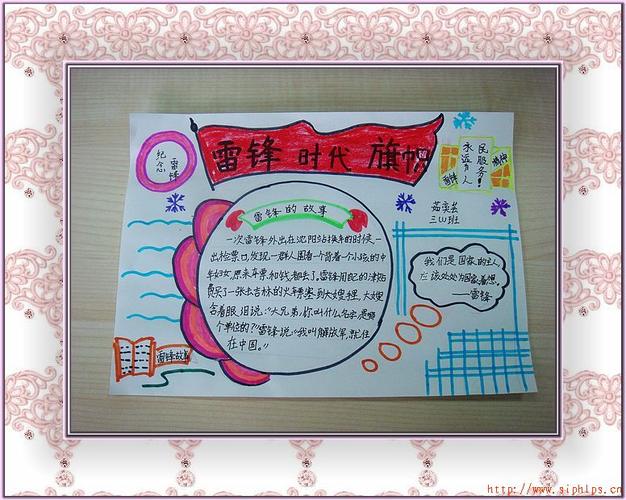 雷锋 时代 旗帜
纪念
雷锋
永远为人
民服务!
茹奕芸
三(4)班
雷锋的故事
一次雷锋外出在沈阳站换车的时候,一
出检票口,发现一群人围着一个背着一个小孩的中
年妇女,原来车票和钱都丢了。雷锋用自己的津贴
费买了一张去吉林的火车票塞到大嫂手里,大嫂
含着眼泪说:“大兄弟,你叫什么名字,是哪
个单位的?”雷锋说:“我叫解放军,就住
在中国。”
我们是国家的主人
应该处处为国家着想。
——雷锋
雷锋故事
http://www.siphlps.cn